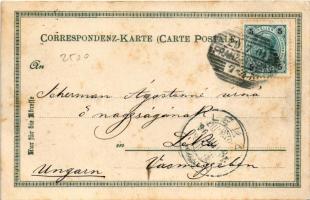 CORRESPONDENZ-KARTE (CARTE POSTALE)
2500
5
An
Scherman Agostonné urnő
ő nagyságának
in
Vasmegyében
Ungarn
Nur für die Adresse